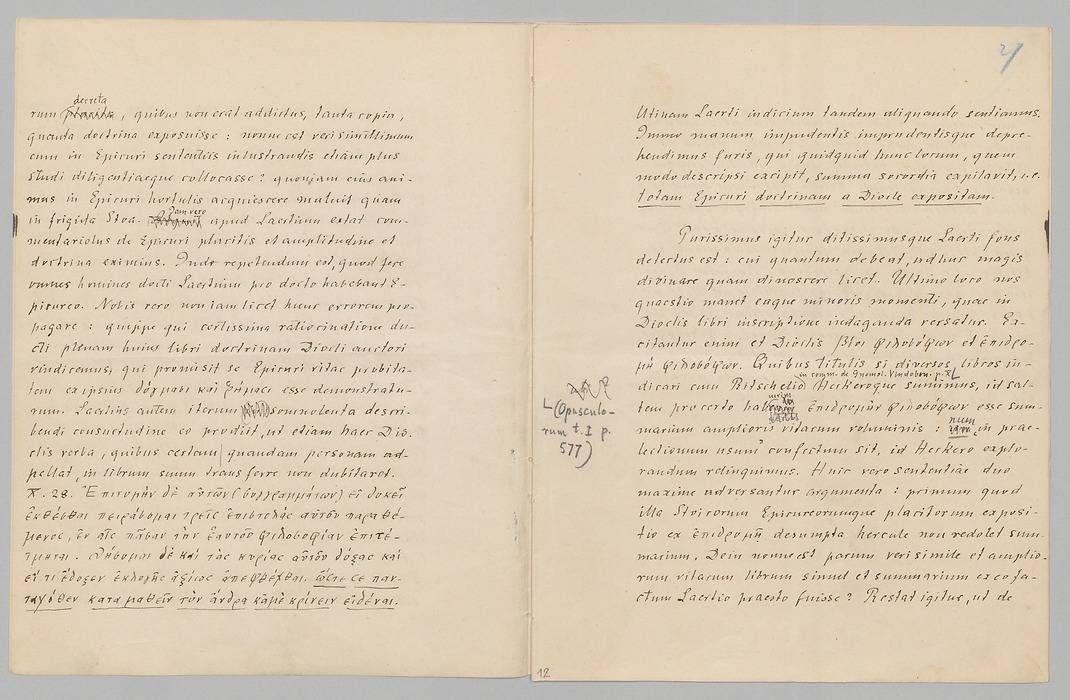 decreta
rum placita, quibus non erat addictus, tanta copia,
quanta doctrina exposuisse: nonne est verisimillimum
eum in Epicuri sententiis inlustrandis etiam plus
studi diligentiaeque collocasse? quoniam eius ani-
mus in Epicuri hortulis acquiescere maluit quam
in frigida Stoa. Iam vero apud Laertium extat com-
mentariolus de Epicuri placitis et amplitudine et
doctrina eximius. Inde repetendum est, quod fere
omnes homines docti Laertium pro docto habebant E-
picureo. Nobis vero non iam licet hunc errorem pro-
pagare: quippe qui certissima ratiocinatione du-
cti plenam huius libri doctrinam Diocli auctori
vindicemus, qui promisit se Epicuri vitae probita-
tem ex ipsius δόγμασι καὶ ῥήμασι esse demonstratu-
rum. Laertius autem iterum somnolenta descri-
bendi consuetudine eo prodiit, ut etiam haec Dio-
clis verba, quibus certam quandam personam ad-
pellat, in librum suum transferre non dubitaret.
X. 28. Ἐπιτομὴν δὲ αὐτῶν (συγγραμμάτων) εἰ δοκεῖ
ἐκθέσθαι πειράσομαι τρεῖς ἐπιστολὰς αὐτοῦ παραθέ-
μενος, ἐν αἷς πᾶσαν τὴν ἑαυτοῦ φιλοσοφίαν ἐπιτέ-
τμηται. Θήσομαι δὲ καὶ τὰς κυρίας αὐτοῦ δόξας καὶ
εἴ τι ἔδοξεν ἐκλογῆς ἀξίως ἀπεφθέχθαι, ὥστε σε παν-
ταχόθεν καταμαθεῖν τὸν ἄνδρα κἀμὲ κρίνειν εἰδέναι.
12
2
Utinam Laerti iudicium tandem aliquando sentiamus.
Immo manum impudentis imprudentisque depre-
hendimus furis, qui quidquid hunc locum, quem
modo descripsi excipit, summa socordia expilavit, i.e.
totam Epicuri doctrinam a Diocle expositam.
Purissimus igitur ditissimusque Laerti fons
detectus est: cui quantum debeat, adhuc magis
divinare quam dinoscere licet. Ultimo loco nos
quaestio manet eaque minoris momenti, quae in
Dioclis libri inscriptione indaganda versatur. Ex-
citantur enim et Dioclis βίοι φιλοσόφων et ἐπιδρο-
μὴ φιλοσόφων. Quibus titulis si diversos libros in-
in comm. de Gnomol. Vindobon. p. X
dicari cum Ritschelio Herkeroque sumimus, id sal-
└ (Opusculo-
rum t. I p.
577)
tem pro certo ἐπιδρομὴν φιλοσόφων esse sum-
marium amplioris vitarum voluminis: num in prae-
lectionum usum confectum sit, id Herkero explo-
randum relinquimus. Huic vero sententiae duo
maxime adversantur argumenta: primum quod
illa Stoicorum Epicureorumque placitorum exposi-
tio ex ἐπιδρομῇ desumpta hercule non redolet sum-
marium. Dein nonne est parum verisimile et amplio-
rum vitarum librum simul et summarium ex eo fa-
ctum Laertio praesto fuisse? Restat igitur, ut de